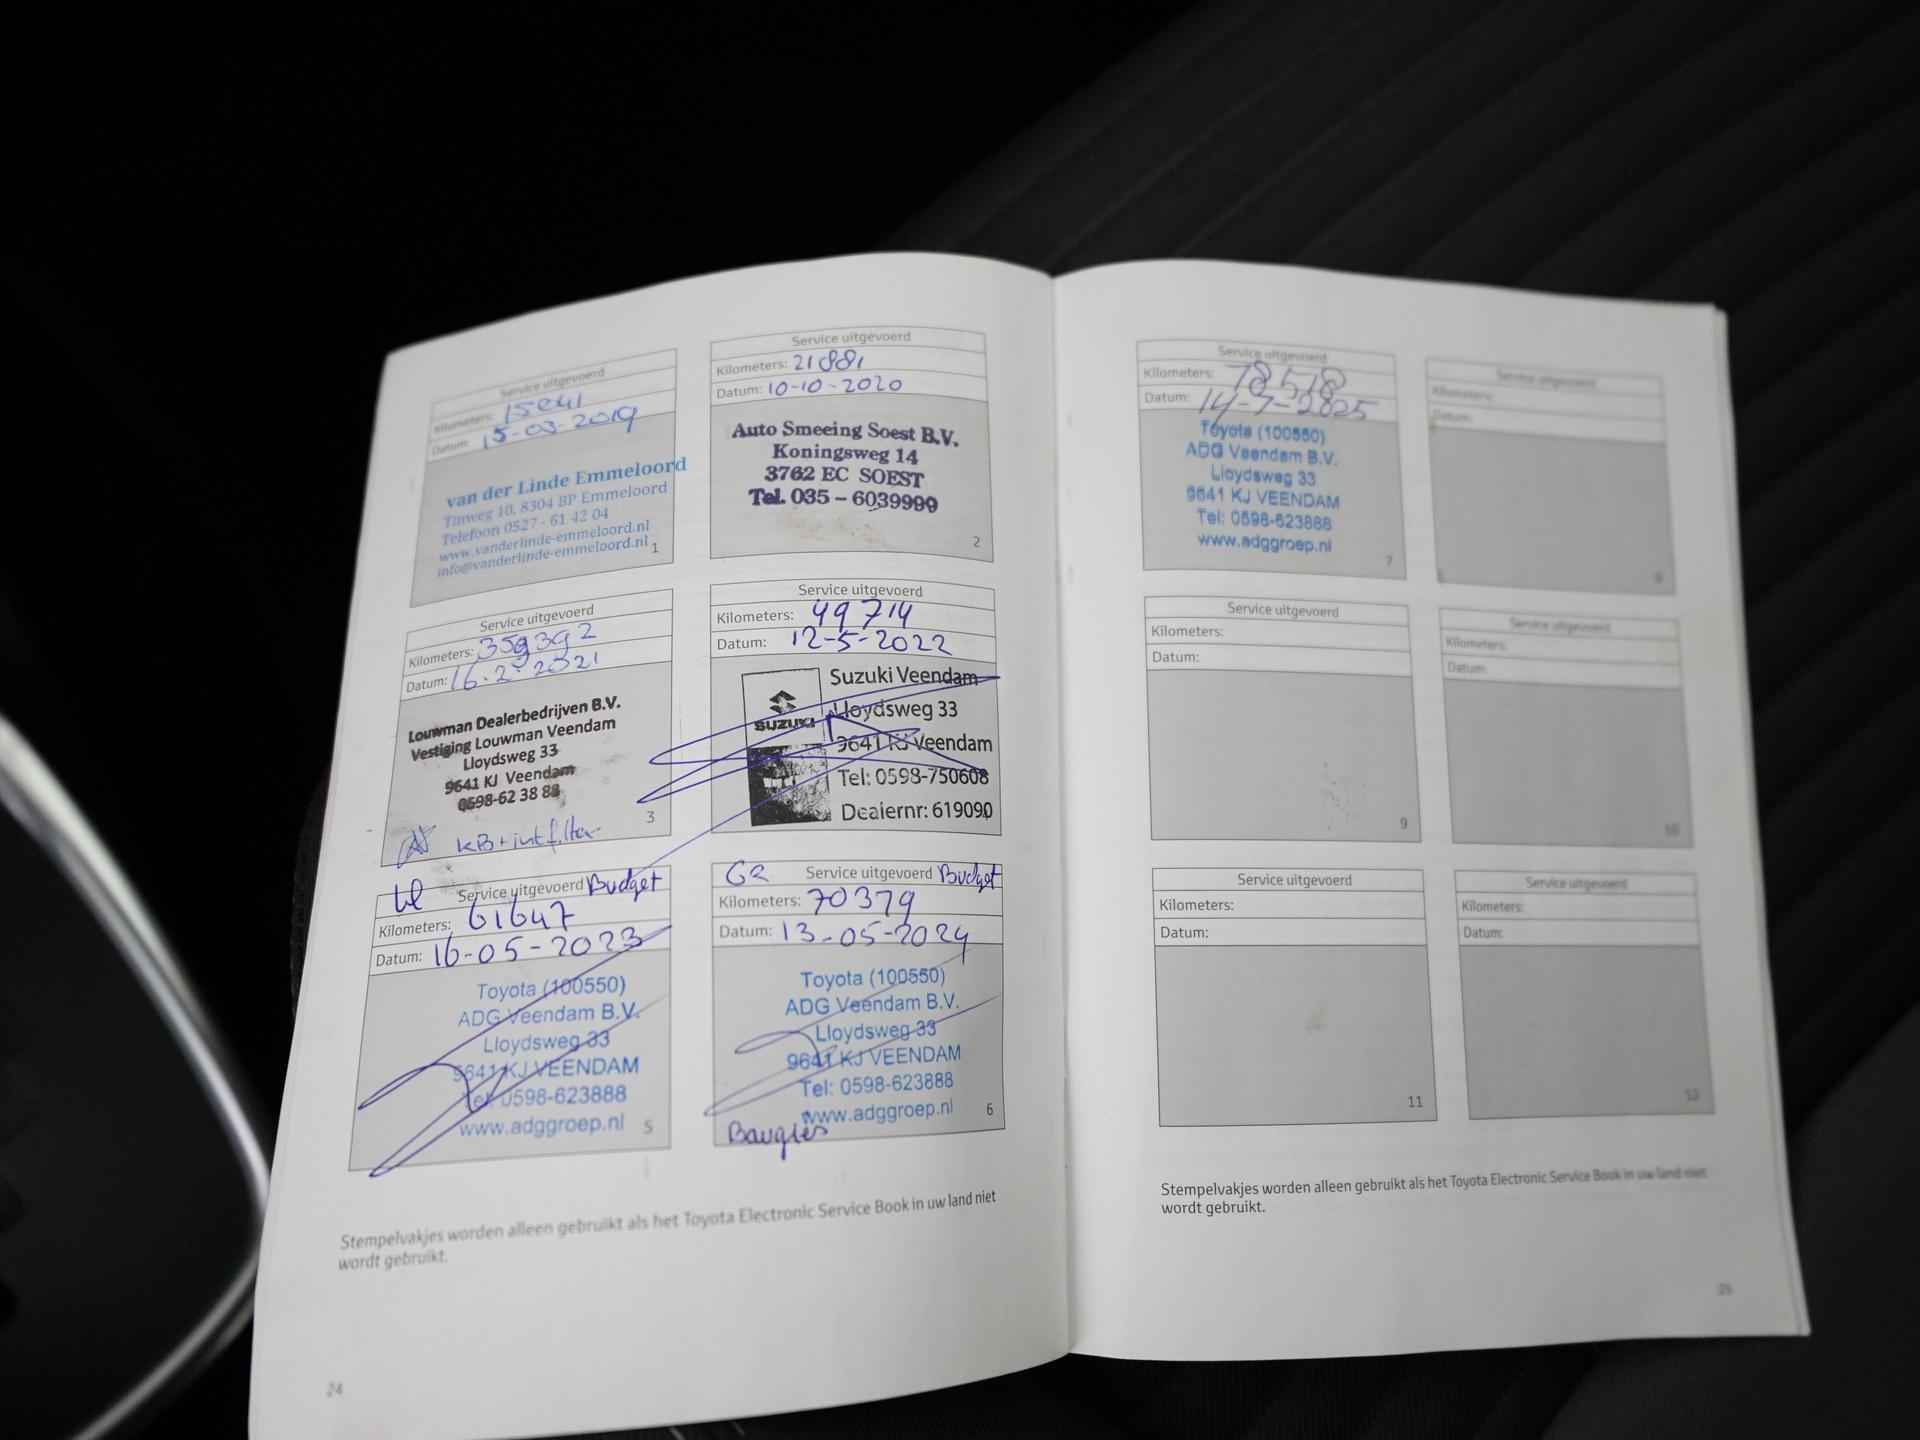 Service uitgevoerd
Kilometers: 15041
Datum: 15-03-2019
van der Linde Emmeloord
Tinweg 10, 8304 BP Emmeloord
Telefoon 0527 - 61 42 04
www.vanderlinde-emmeloord.nl
info@vanderlinde-emmeloord.nl
1
Service uitgevoerd
Kilometers: 21881
Datum: 10-10-2020
Auto Smeeing Soest B.V.
Koningsweg 14
3762 EC SOEST
Tel. 035 - 6039999
2
Service uitgevoerd
Kilometers:
Datum: 16-2-2021
Louwman Dealerbedrijven B.V.
Vestiging Louwman Veendam
Lloydsweg 33
9641 KJ Veendam
0598-62 38 88
KB + int filter
3
Service uitgevoerd
Kilometers: 49714
Datum: 12-5-2022
SUZUKI
Suzuki Veendam
Lloydsweg 33
9641 KJ Veendam
Tel: 0598-750608
Dealernr: 619090
Service uitgevoerd Budget
Kilometers: 61647
Datum: 16-05-2023
Toyota (100550)
ADG Veendam B.V.
Lloydsweg 33
9641 KJ VEENDAM
Tel: 0598-623888
www.adggroep.nl
5
GR Service uitgevoerd Budget
Kilometers: 70379
Datum: 13-05-2024
Toyota (100550)
ADG Veendam B.V.
Lloydsweg 33
9641 KJ VEENDAM
Tel: 0598-623888
www.adggroep.nl
6
Stempelvakjes worden alleen gebruikt als het Toyota Electronic Service Book in uw land niet
wordt gebruikt.
24
Service uitgevoerd
Kilometers: 78518
Datum: 14-7-2025
Toyota (100550)
ADG Veendam B.V.
Lloydsweg 33
9641 KJ VEENDAM
Tel: 0598-623888
www.adggroep.nl
7
Service uitgevoerd
Kilometers:
Datum:
8
Service uitgevoerd
Kilometers:
Datum:
9
Service uitgevoerd
Kilometers:
Datum:
10
Service uitgevoerd
Kilometers:
Datum:
11
Service uitgevoerd
Kilometers:
Datum:
12
Stempelvakjes worden alleen gebruikt als het Toyota Electronic Service Book in uw land niet
wordt gebruikt.
25